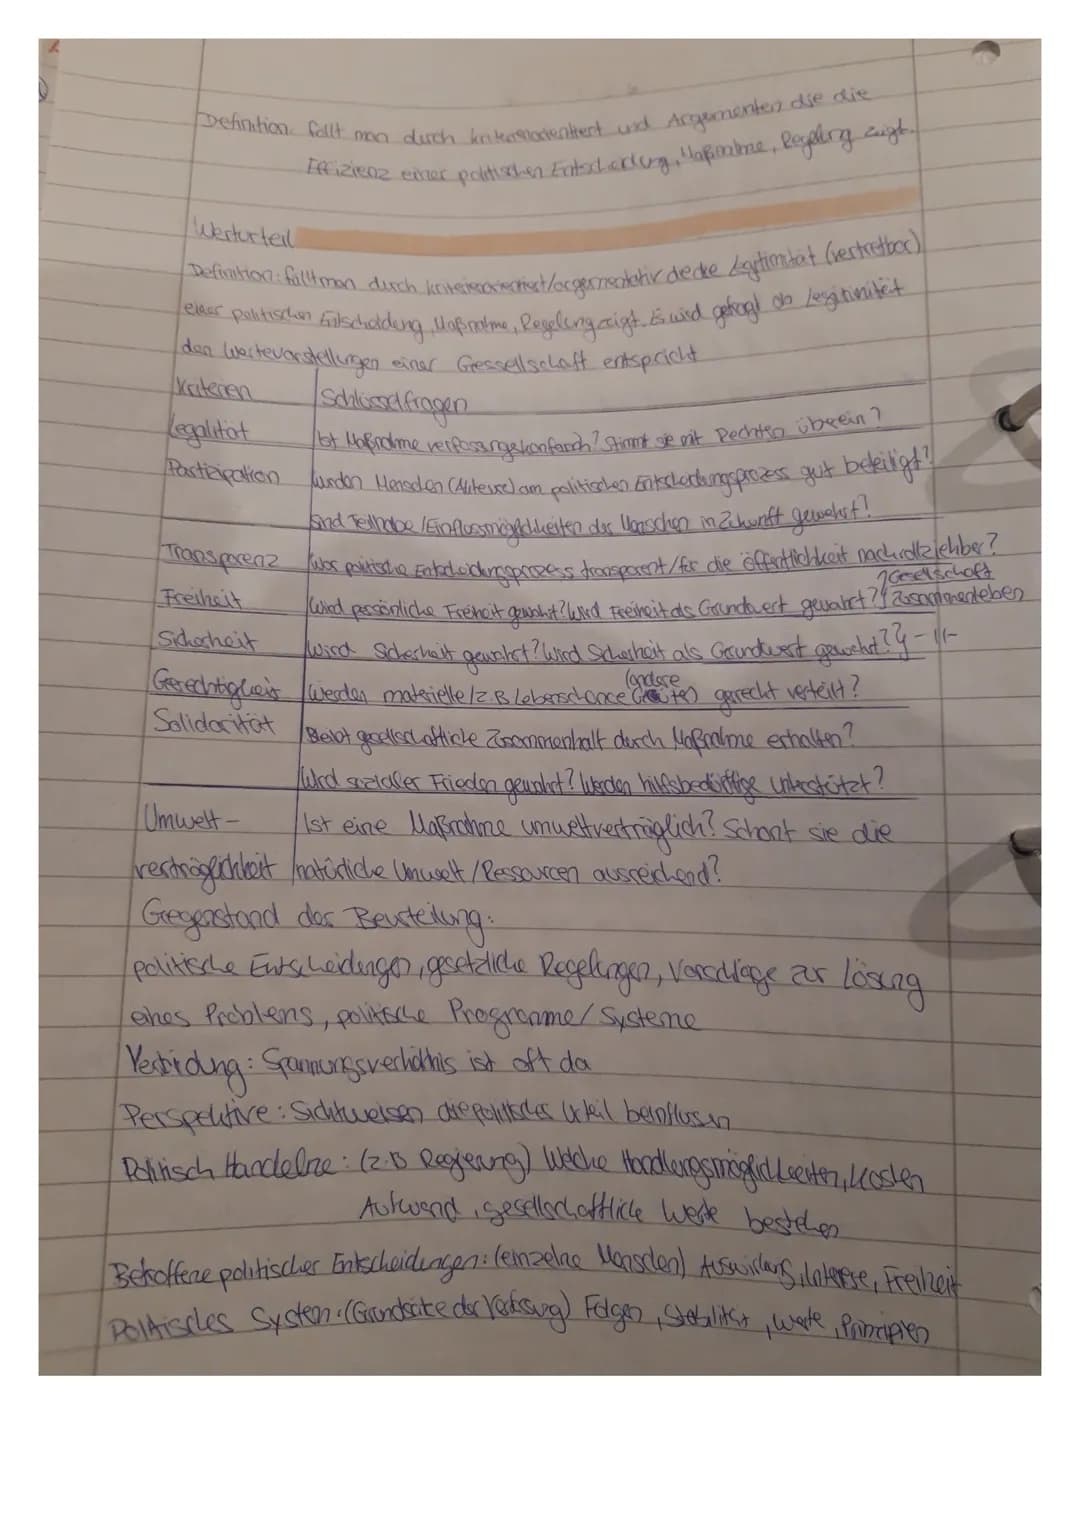 Definition: fällt man durch kriterienorientiert und Argumenten die die
Effizienz einer politischen Entscheidung, Maßnahme, Regelung zeigt.
Werturteil
Definition: fällt man durch kriterienorientiert/argumentativ die Legitimität (vertretbar)
einer politischen Entscheidung, Maßnahme, Regelung zeigt. Es wird gefragt ob Legitimität
den Wertevorstellungen einer Gessellschaft entspricht
Kriterien Schlüsselfragen
Legalität Ist Maßnahme verfassungskonform? Stimmt sie mit Rechten überein?
Partizipation Wurden Menschen (Akteure) am politischen Entscheidungsprozess gut beteiligt?
Sind Teilhabe/Einflussmöglichkeiten des Menschen in Zukunft gewahrt?
Transparenz War politische Entscheidungsprozess transparent/für die öffentlichkeit nachvollziehbar?
Gesellschaft
Freiheit Wird persönliche Freiheit gewahrt? Wird Freiheit als Grundwert gewahrt? Zusammenleben
Sicherheit Wird Sicherheit gewahrt? Wird Sicherheit als Grundwert gewahrt? -11-
Gerechtigkeit Werden materielle/z.B Lebenschance (andere Güter) gerecht verteilt?
Solidarität Bleibt gesellschaftliche Zusammenhalt durch Maßnahme erhalten?
Wird sozialer Frieden gewahrt? Werden hilfsbedürftige unterstützt?
Umwelt- Ist eine Maßnahme umweltverträglich? Schont sie die
verträglichkeit natürliche Umwelt/Ressourcen ausreichend?
Gegenstand der Beurteilung:
politische Entscheidungen, gesetzliche Regelungen, Vorschläge zur Lösung
eines Problems, politische Programme/Systeme
Verbidung: Spannungsverhältnis ist oft da
Perspektive: Sichtweisen die politisches Urteil beinflussen
Politisch Handelne: (z.B Regierung) Welche Handlungsmöglichkeiten, Kosten
Aufwand, gesellschaftliche Werte bestehen
Betroffene politischer Entscheidungen: (einzelne Menschen) Auswirkung, Interesse, Freiheit
Politisches System: (Grundsätze der Verfassung) Folgen, Stabilität, Werte, Prinzipien